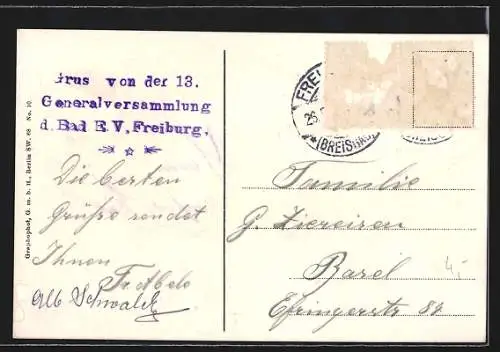 Grus von der 13.
Generalversammlung
d. Bad E.V. Freiburg.
Die besten
Grüße sendet
Ihnen
Fr. Abele
Alb Schwalek
Graphophot, G. m. b. H., Berlin SW. 68 No. 10
FREI
26.
(BREISGAU)
Familie
G. Ziereisen
Basel
Efringerstr 84